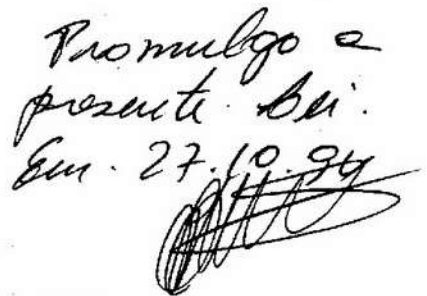 Promulgo a
presente Lei.
Em. 27.10.94